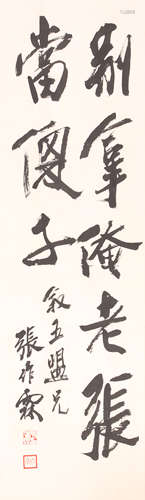 別拿俺老張
當傻子
敘五盟兄
張作霖